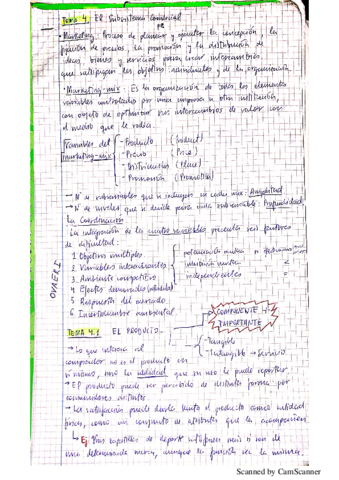 Tema 4. El Subsistema Comercial
- Marketing: Proceso de planear y ejecutar la concepción, la
fijación de precios, la promoción y la distribución de
ideas, bienes y servicios para crear intercambios
que satisfagan los objetivos individuales y de la organización.
- Marketing-mix: Es la organización de todos los elementos
variables controlados por una empresa u otra institución,
con objeto de optimizar sus intercambios de valor con
el medio que le rodea.
Variables del marketing-mix
- Producto (Product)
- Precio (Price)
- Distribución (Place)
- Promoción (Promotion)
→ Nº de subvariables que se incluyen en cada mix: Amplitud
→ Nº de niveles que se decide para cada subvariable: Profundidad
La Coordinación
La integración de las cuatro variables presenta seis factores
de dificultad:
1. Objetivos múltiples
2. Variables interactuantes
3. Ambiente competitivo
4. Efectos demorados
5. Respuesta del mercado
6. Incertidumbre ambiental
independientes
COMPONENTE + IMPORTANTE
TEMA 4.1 EL PRODUCTO
- Tangible
- Intangible → Servicio
→ Lo que interesa al
comprador no es el producto en
sí mismo, sino la utilidad que su uso le puede reportar
→ El producto puede ser percibido de distinta forma por
consumidores distintos
→ La satisfacción puede darla tanto el producto como utilidad
física, como un conjunto de atributos que lo acompañan
↳ Ej: Unas zapatillas de deporte satisfacen más si son de
una determinada marca, aunque la función sea la misma.
OVAERI
Scanned by CamScanner